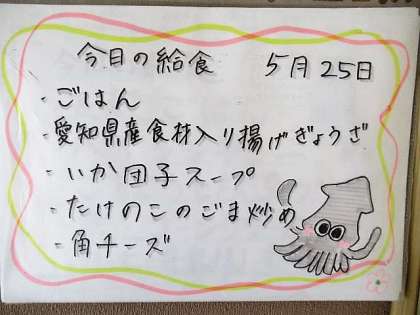 今日の給食 5月25日
・ごはん
・愛知県産食材入り揚げぎょうざ
・いか団子スープ
・たけのこのごま炒め
・角チーズ